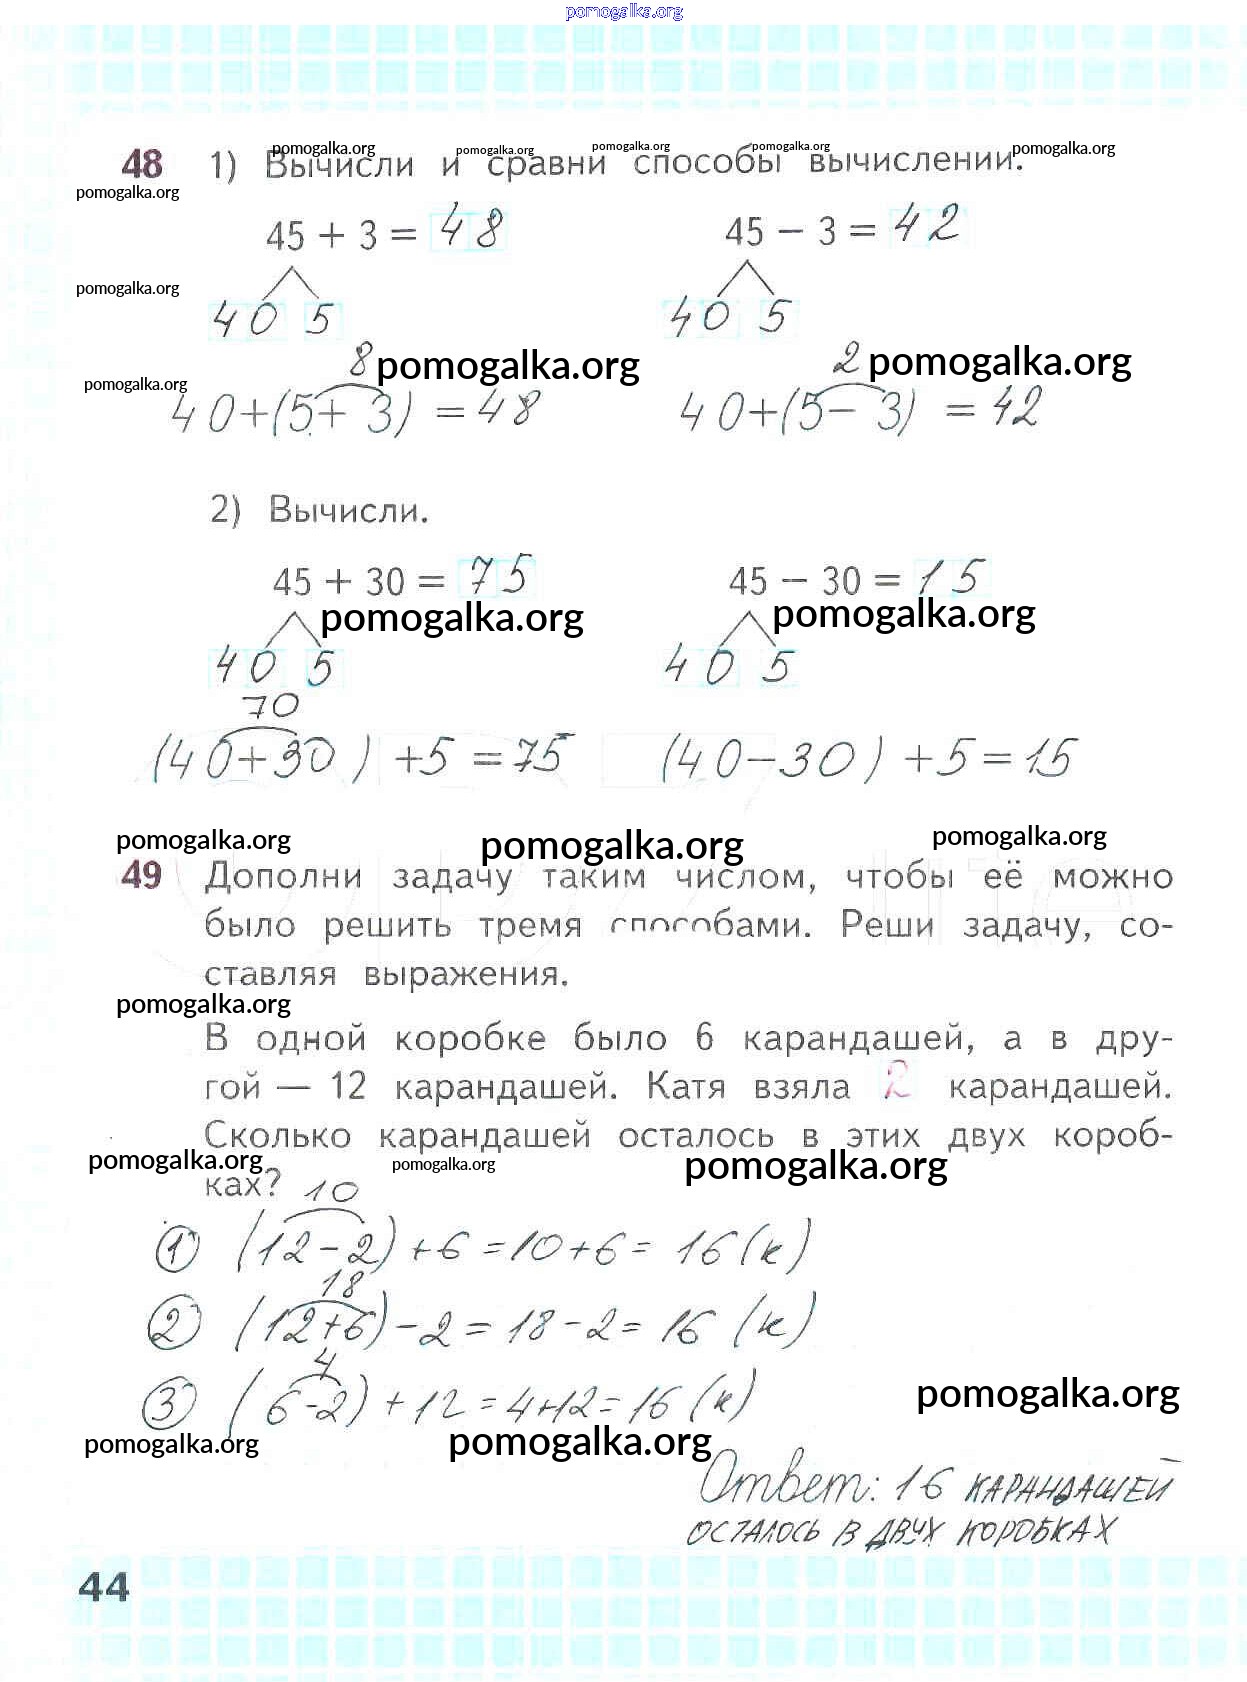 pomogalka.org
48 1) Вычисли и сравни способы вычислений.
pomogalka.org pomogalka.org pomogalka.org pomogalka.org pomogalka.org
pomogalka.org
45 + 3 = 48 45 − 3 = 42
pomogalka.org
40 5 40 5
8 pomogalka.org 2 pomogalka.org
pomogalka.org
40+(5+3) = 48 40+(5−3) = 42
2) Вычисли.
45 + 30 = 75 45 − 30 = 15
pomogalka.org pomogalka.org
40 5 40 5
70
(40+30)+5=75 (40−30)+5=15
pomogalka.org pomogalka.org pomogalka.org
49 Дополни задачу таким числом, чтобы её можно
было решить тремя способами. Реши задачу, со-
ставляя выражения.
pomogalka.org
В одной коробке было 6 карандашей, а в дру-
гой — 12 карандашей. Катя взяла 2 карандашей.
Сколько карандашей осталось в этих двух короб-
pomogalka.org pomogalka.org pomogalka.org
ках?
10
1 (12−2)+6=10+6=16(к)
18
2 (12+6)−2=18−2=16(к)
4
3 (6-2)+12=4+12=16(к)
pomogalka.org
pomogalka.org pomogalka.org
Ответ: 16 КАРАНДАШЕЙ
ОСТАЛОСЬ В ДВУХ КОРОБКАХ
44